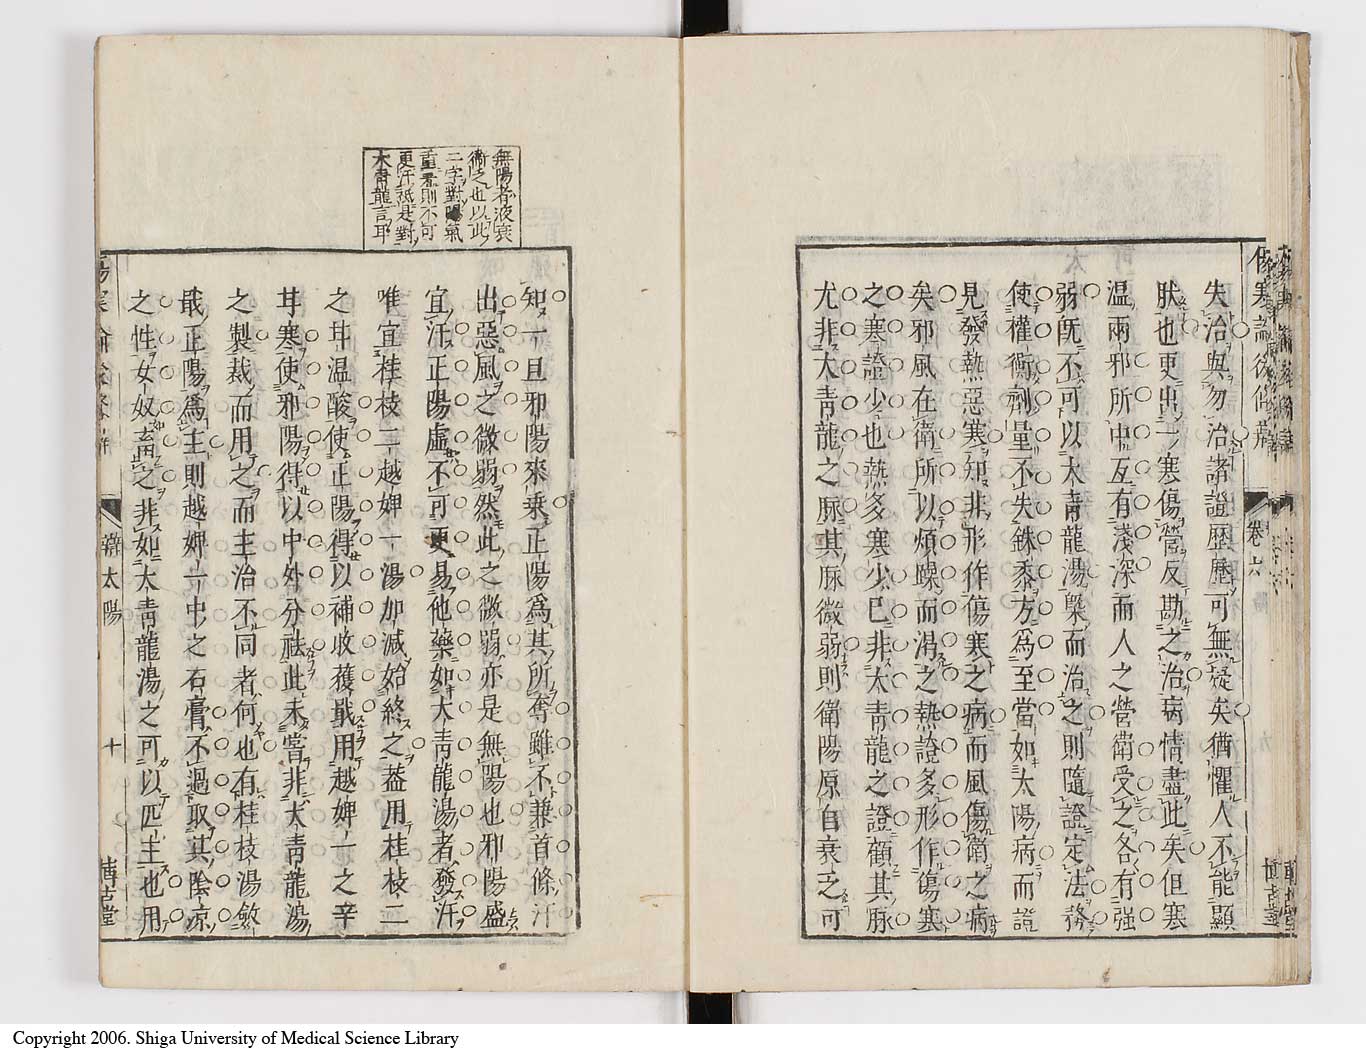 傷寒論後條辨
卷六
博古堂
失治與勿治諸證歷歷可無疑矣猶懼人不能顯
狀也更出一寒傷營反勘之治病情盡此矣但寒
溫兩邪所中互有淺深而人之營衛受之各有强
弱旣不可以大青龍湯槩而治之則隨證定法務
使權衡劑量不失銖黍方爲至當如太陽病而證
見發熱惡寒知非形作傷寒之病而風傷衛之病
矣邪風在衛所以煩躁而渴之熱證多形作傷寒
之寒證少也熱多寒少已非大青龍之證顧其脉
尤非大青龍之脉其脉微弱則衛陽原自衰乏可
無陽者液衰
衞之也以此
二字對陽氣
重看則不可
更汗祗是對
大青龍言耳
知一旦邪陽來乗正陽爲其所奪雖不兼首條汗
出惡風之微弱然此之微弱亦是無陽也邪陽盛
宜汗正陽虛不可更易他藥如大青龍湯者發汗
唯宜桂枝二越婢一湯加減始終之葢用桂枝二
之甘溫酸使正陽得以補收獲戢用越婢一之辛
甘寒使邪陽得以中外分祛此未嘗非大青龍湯
之製裁而用之而主治不同者何也有桂枝湯斂
戢正陽爲主則越婢一中之石膏不過取其陰凉
之性女奴畜之非如大青龍湯之可以匹主也用
辨太陽
十
博古堂